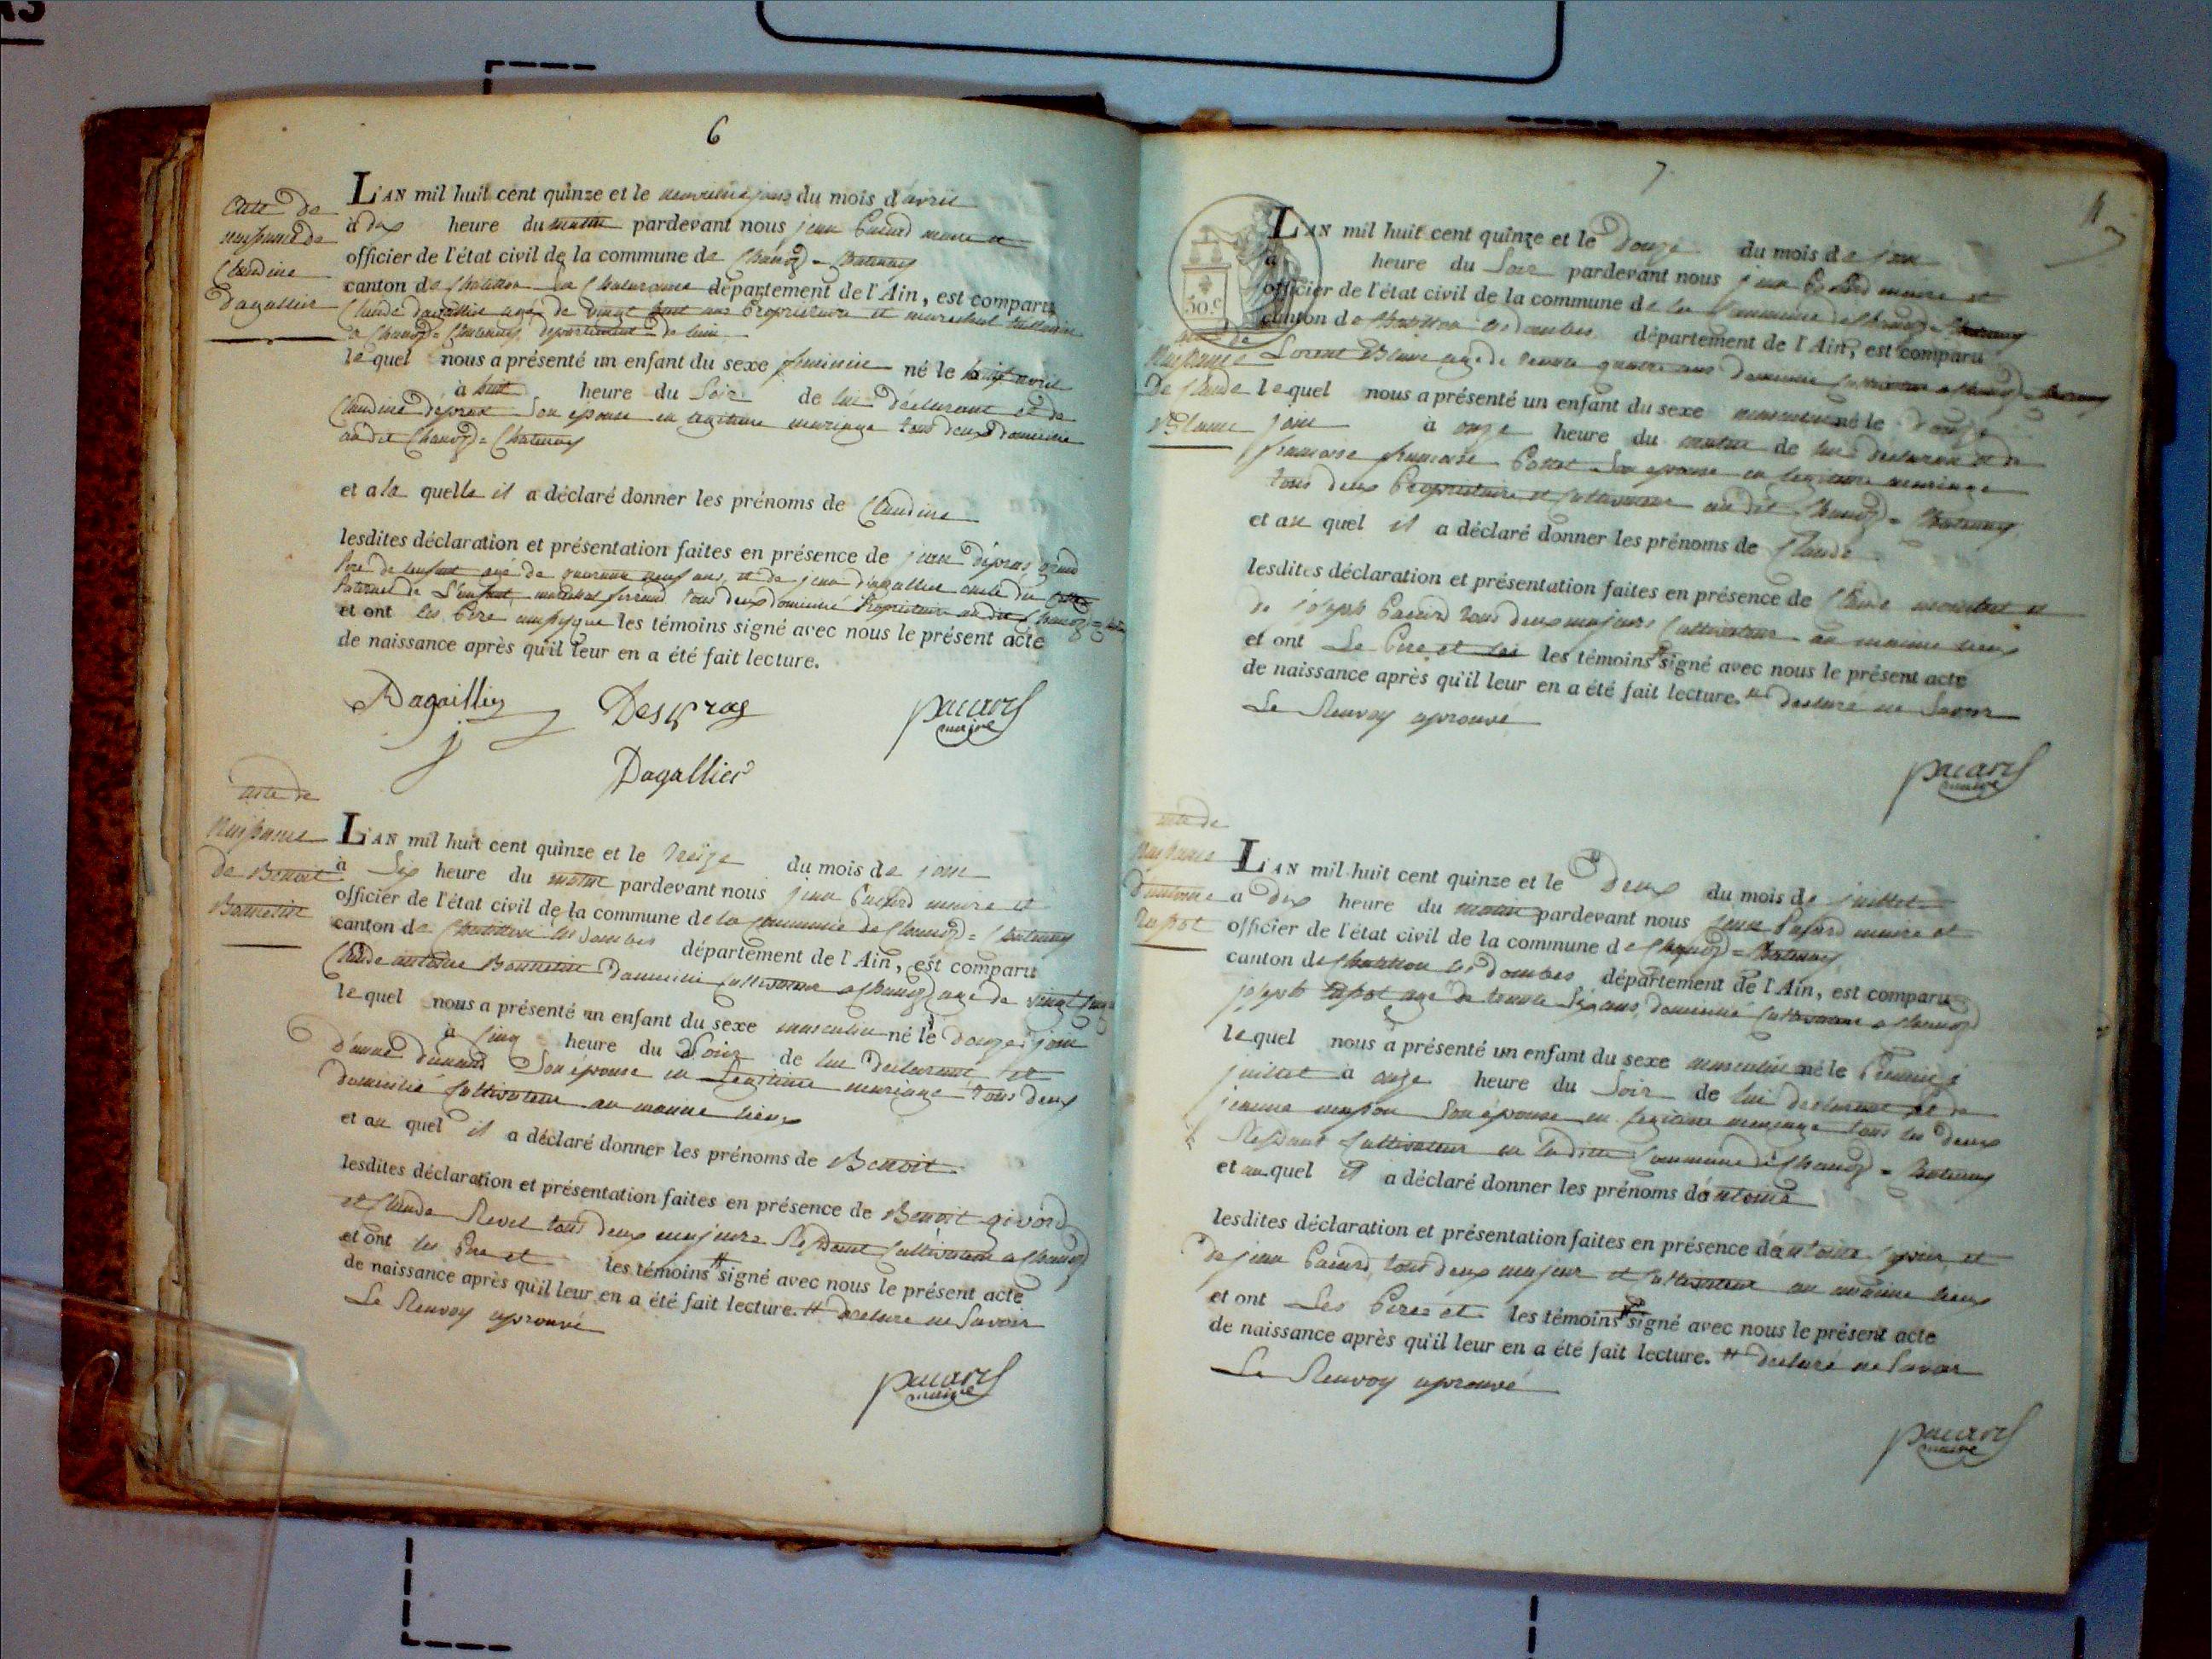 6
acte de
naissance de
Claudine
Dagallier
L'AN mil huit cent quinze et le neuvième jour du mois d'avril
à dix heure du matin pardevant nous jean Pacard maire et
officier de l'état civil de la commune de Chanoz = Chatenay
canton de Chatillon département de l'Ain, est comparu
Claude dagallier agé de vingt huit ans Proprietaire et marechal
a Chanoz = Chatenay, departement de lain
lequel nous a présenté un enfant du sexe feminin né le huit avril
à huit heure du Soir de lui déclarant et de
Claudine dépras Son épouse en légitime mariage tous deux domicilié
au dit Chanoz = Chatenay
et a la quelle il a déclaré donner les prénoms de Claudine
lesdites déclaration et présentation faites en présence de jean dépras grand
Pere de lenfant agé de quarante neuf ans, et de jean dagallier oncle
Paternel de L'enfant, marechal ferrand tous deux domicilié Proprietaire au dit Chanoz
et ont les Pere les témoins signé avec nous le présent acte
de naissance après qu'il leur en a été fait lecture.
Dagaillier Despras pacard
maire
Dagallier
acte de
Naissance
de Benoit
Bonnetin
L'AN mil huit cent quinze et le treize du mois de join
à Six heure du matin pardevant nous jean Pacard maire et
officier de l'état civil de la commune de la commune de Chanoz = Chatenay
canton de Chatillon les dombes département de l'Ain, est comparu
Claude antoine Bonnetin domicilié cultivateur a Chanoz agé de vingt
lequel nous a présenté un enfant du sexe masculin né le douze join
à sinq heure du Soir de lui declarant et
Son épouse en Legitime mariage tous deux
domicilié Cultivateur au maime lieux
et au quel il a déclaré donner les prénoms de Benoit
lesdites déclaration et présentation faites en présence de Benoit givord
et Claude Revel tous deux majeurs Residant Cultivateur a Chanoz
et ont les Pere et les témoins # signé avec nous le présent acte
de naissance après qu'il leur en a été fait lecture. # declare ne Savoir
Le Renvoy aprouvé
pacard
maire
7
50.c
acte de
Naissance
De Claude
L'AN mil huit cent quinze et le Douze du mois de join
à heure du Soir pardevant nous jean Pacard maire et
officier de l'état civil de la commune de la Commune de Chanoz = Chatenay
canton de Chatillon les dombes département de l'Ain, est comparu
Lorent agé de trente quatre ans domicilié Cultivateur a Chanoz = Chatenay
lequel nous a présenté un enfant du sexe masculin né le douze
join à onze heure du matin de lui declarant et de
francoise Son epouse en legitime mariage
tous deux Proprietaire et Cultivateur au dit Chanoz = Chatenay
et au quel il a déclaré donner les prénoms de Claude
lesdites déclaration et présentation faites en présence de Claude et
de joseph Pacard tous deux majeurs Cultivateur au maime lieux
et ont Le Pere et les témoins # signé avec nous le présent acte
de naissance après qu'il leur en a été fait lecture. # declaré ne Savoir
Le Renvoy aprouvé
pacard
maire
acte de
Naissance
D'antoine
L'AN mil huit cent quinze et le Deux du mois de juillet
à dix heure du matin pardevant nous jean Pacard maire et
officier de l'état civil de la commune de Chanoz = Chatenay
canton de Chatillon les dombes département de l'Ain, est comparu
joseph agé de trente Six ans, domicilié Cultivateur a Chanoz
lequel nous a présenté un enfant du sexe masculin né le Premier
juillet à onze heure du Soir de lui declarant et de
jeanne Son épouse en legitime mariage tous les deux
Residant Cultivateur en la ditte Commune de Chanoz = Chatenay
et au quel il a déclaré donner les prénoms d'antoine
lesdites déclaration et présentation faites en présence d'antoine et
de jean Pacard, tous deux majeur et Cultivateur au maime lieux
et ont Les Peres et les témoins # signé avec nous le présent acte
de naissance après qu'il leur en a été fait lecture. # declaré ne Savoir
Le Renvoy aprouvé
pacard
maire